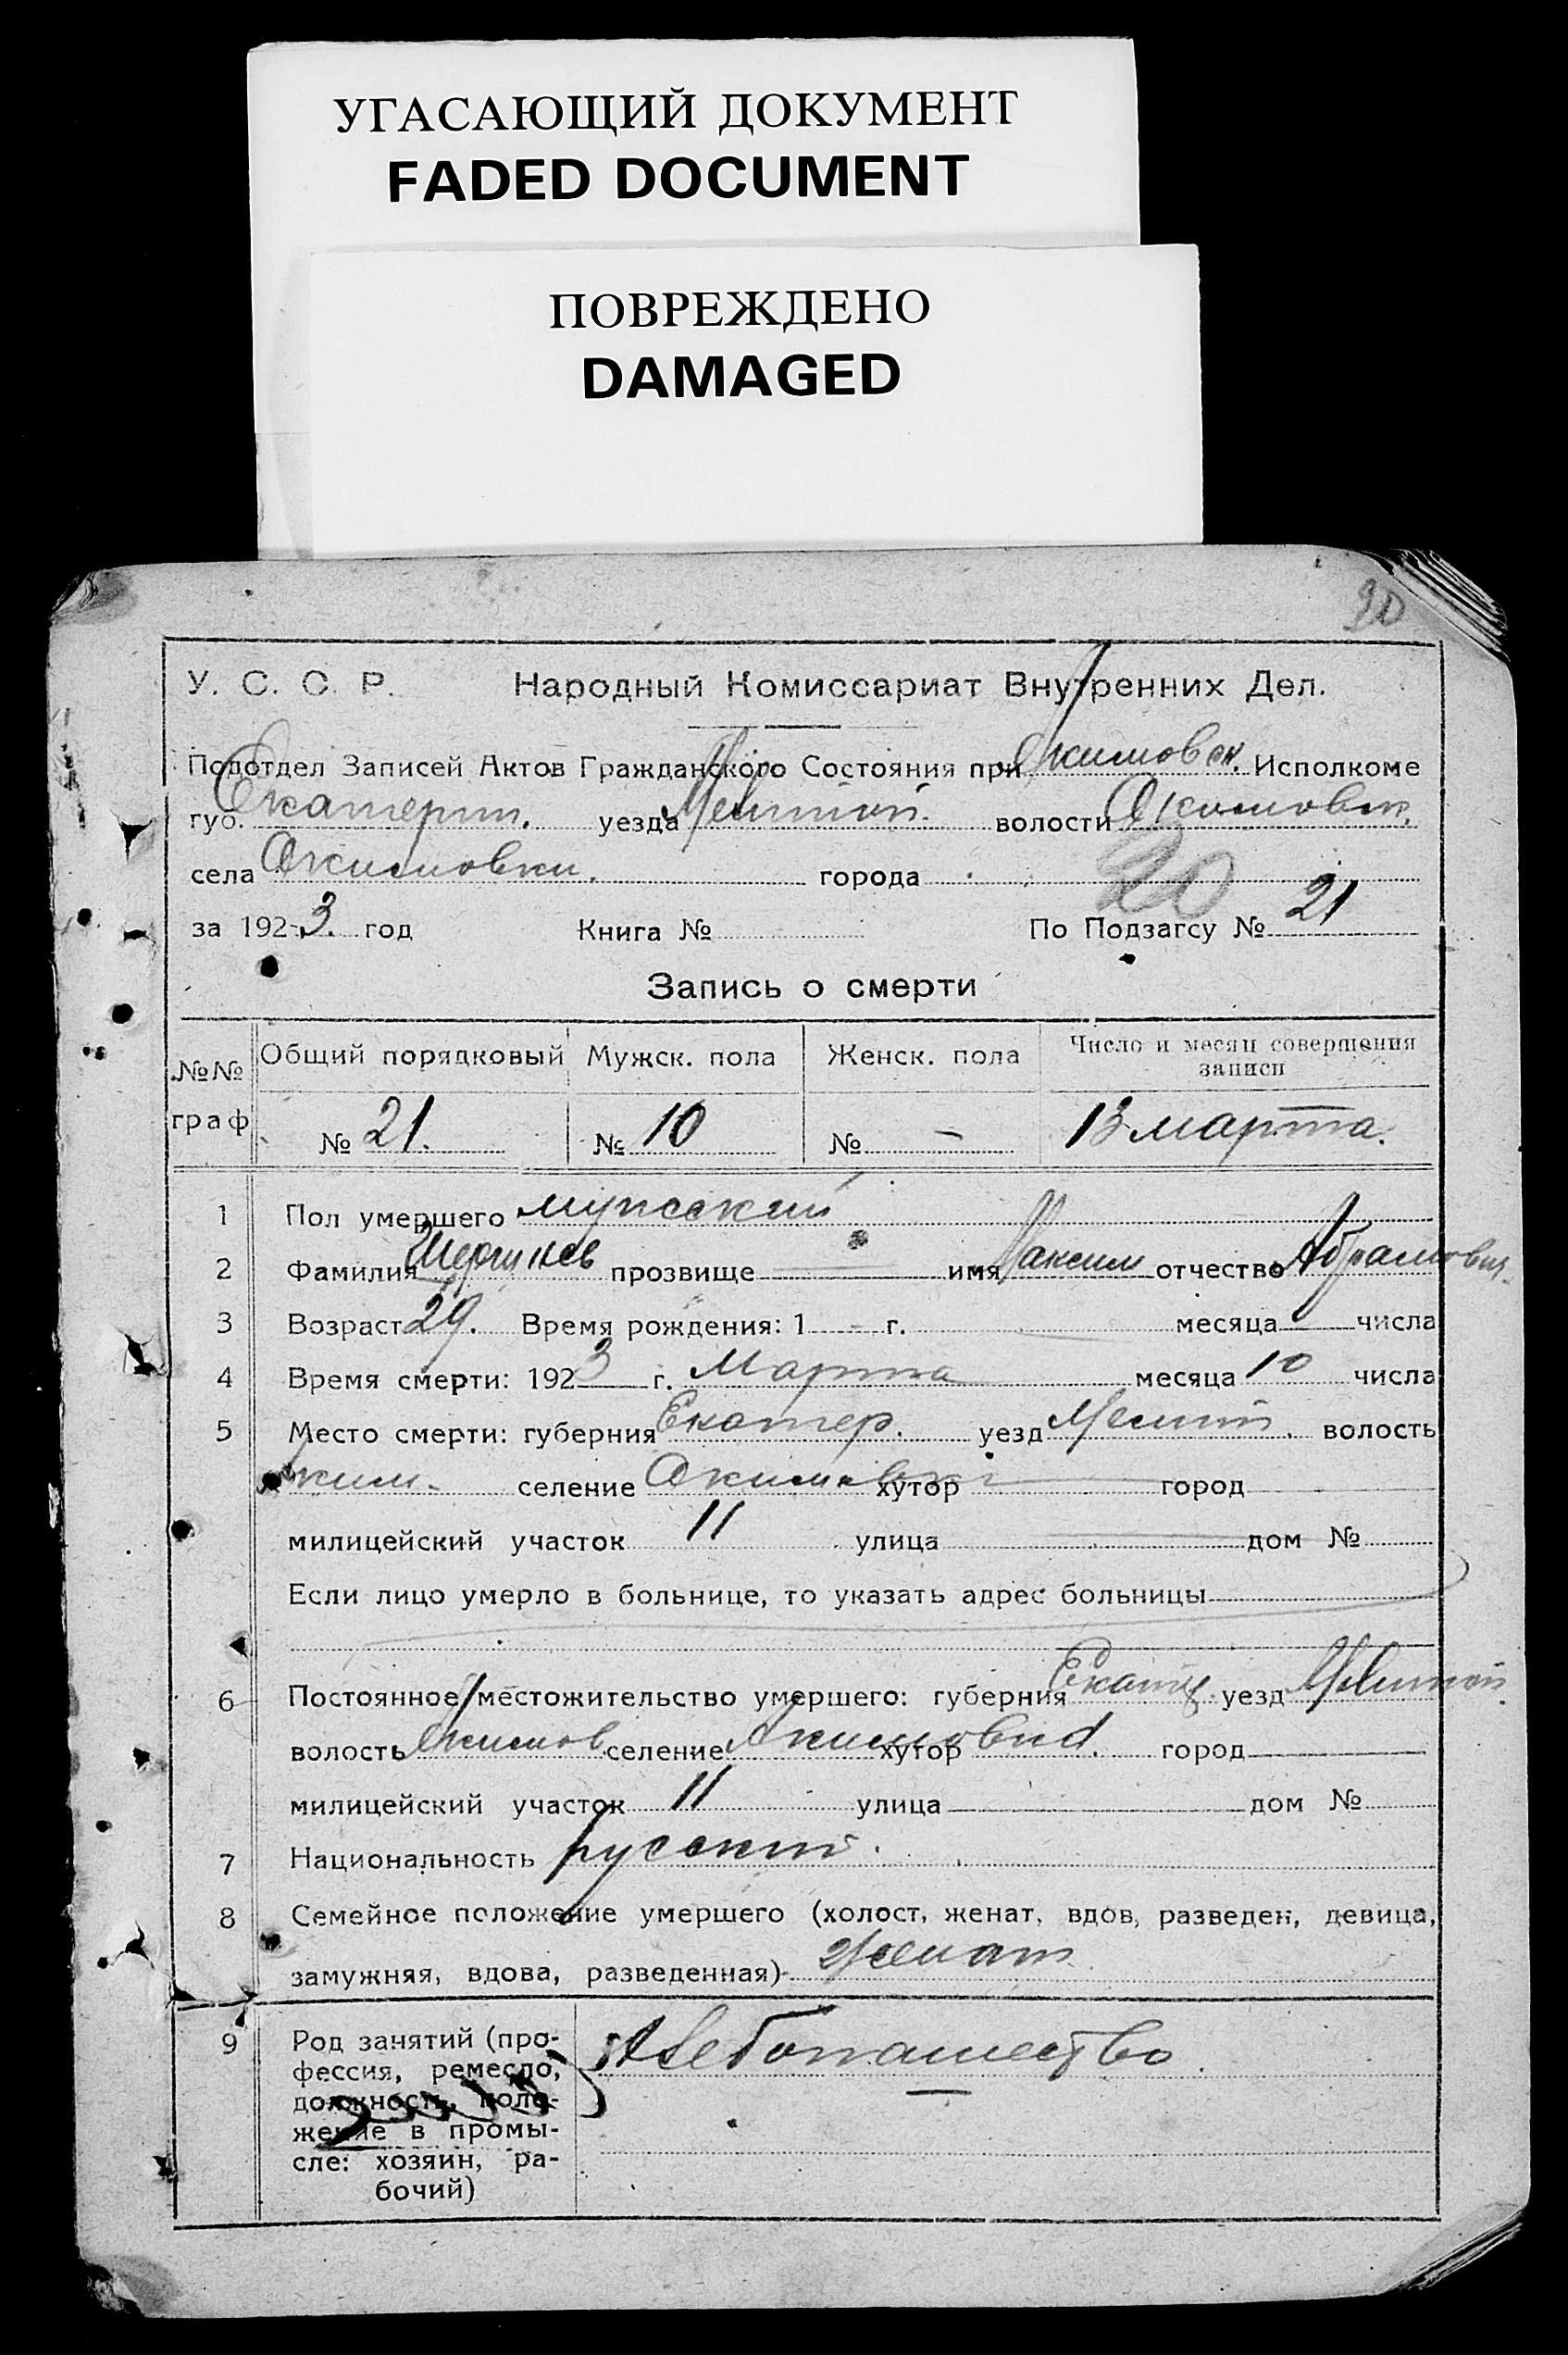 УГАСАЮЩИЙ ДОКУМЕНТ
FADED DOCUMENT
ПОВРЕЖДЕНО
DAMAGED
У. С. С. Р. Народный Комиссариат Внутренних Дел.
Подотдел Записей Актов Гражданского Состояния при Акимовск. Исполкоме
губ. Екатерин. уезда Мелитоп. волости Акимовск.
села Акимовки. города
20
за 1923. год Книга № По Подзагсу № 21
Запись о смерти
№№ граф Общий порядковый Мужск. пола Женск. пола Число и месяц совершения записи
№ 21. № 10 № – 13 марта.
1 Пол умершего мужской
2 Фамилия прозвище имя Максим отчество Абрамович.
3 Возраст 29. Время рождения: 1 - г. месяца числа
4 Время смерти: 1923 г. Марта месяца 10 числа
5 Место смерти: губерния Екатер. уезд Мелит. волость
Аким. селение Акимовка хутор город
милицейский участок 11 улица дом №
Если лицо умерло в больнице, то указать адрес больницы
6 Постоянное местожительство умершего: губерния Екатер. уезд Мелитоп.
волость Акимов. селение Акимовка. хутор город
милицейский участок 11 улица дом №
7 Национальность русский.
8 Семейное положение умершего (холост, женат, вдов, разведен, девица,
замужняя, вдова, разведенная) Женат.
9 Род занятий (про- Хлебопашество.
фессия, ремесло,
должность, поло-
жение в промы-
сле: хозяин, ра-
бочий)